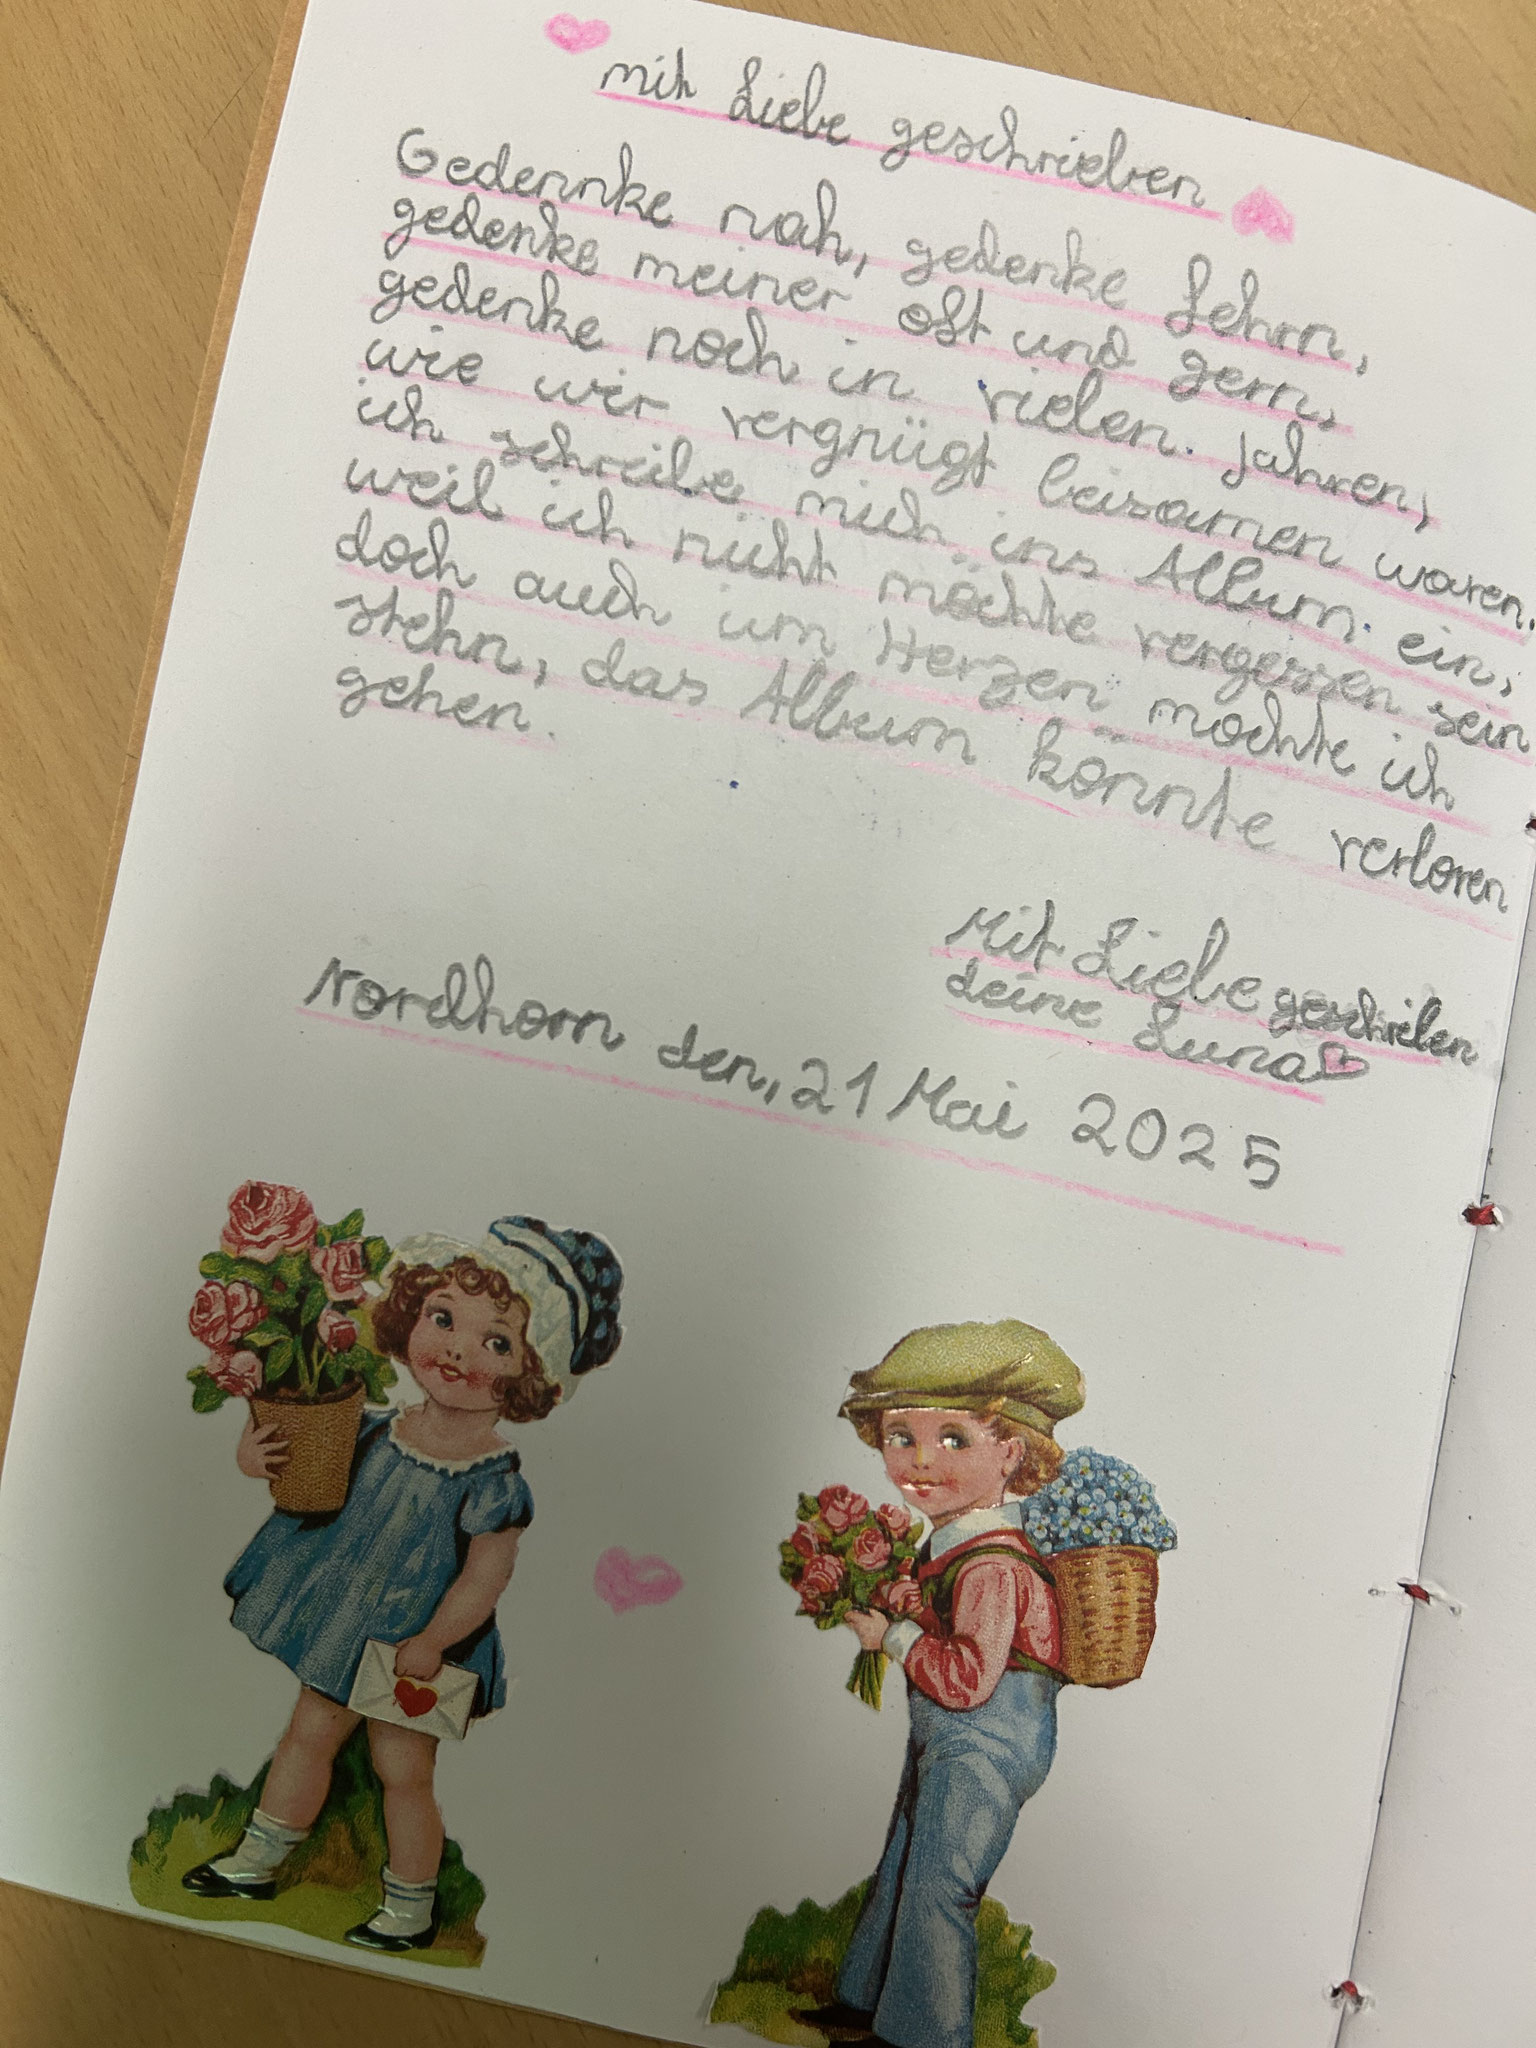 mit Liebe geschrieben
Gedennke nah, gedenke fehrn,
gedenke meiner oft und gern,
gedenke noch in vielen Jahren,
wie wir vergnügt beisamen waren.
ich schreibe mich ins Album ein,
weil ich nicht möchte vergessen sein
doch auch im Herzen möchte ich
stehn, das Album könnte verloren
gehen.
Mit Liebe geschrieben
deine Luna
Nordhorn den, 21 Mai 2025